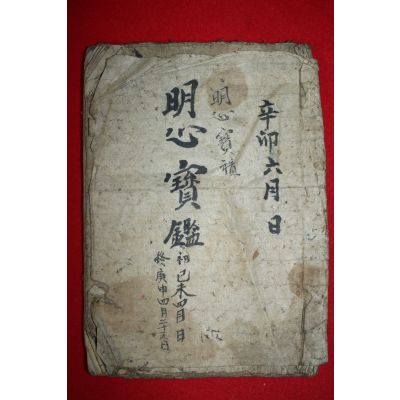 辛卯六月日
明心寶
明心寶鑑
初己未四月日
終庚申四月二十三日